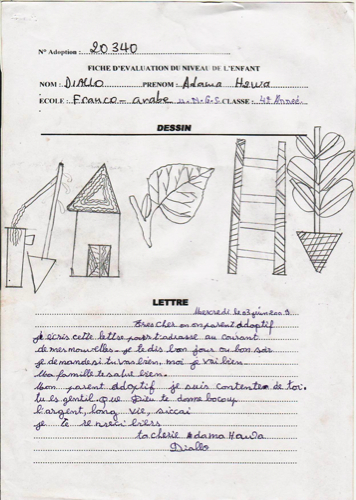 N° Adoption : 20340
FICHE D'EVALUATION DU NIVEAU DE L'ENFANT
NOM : DIALLO PRENOM : Adama Hawa
ECOLE : Franco-arabe CLASSE : 4e Année
DESSIN
LETTRE
Mercredi le 03 juin 2009
Tres cher mon parent adoptif
je ecris cette lettre pour t'adresse au courant
de mes nouvelles - je te dis bon jour ou bon soir
je demande si tu vas bien, moi je vai bien.
Ma famille te salue bien.
Mon parent adoptif je suis contente de toi.
tu es gentil que Dieu te donne bocou
l'argent, long vie,
je te
ta cherie Adama Hawa
Diallo